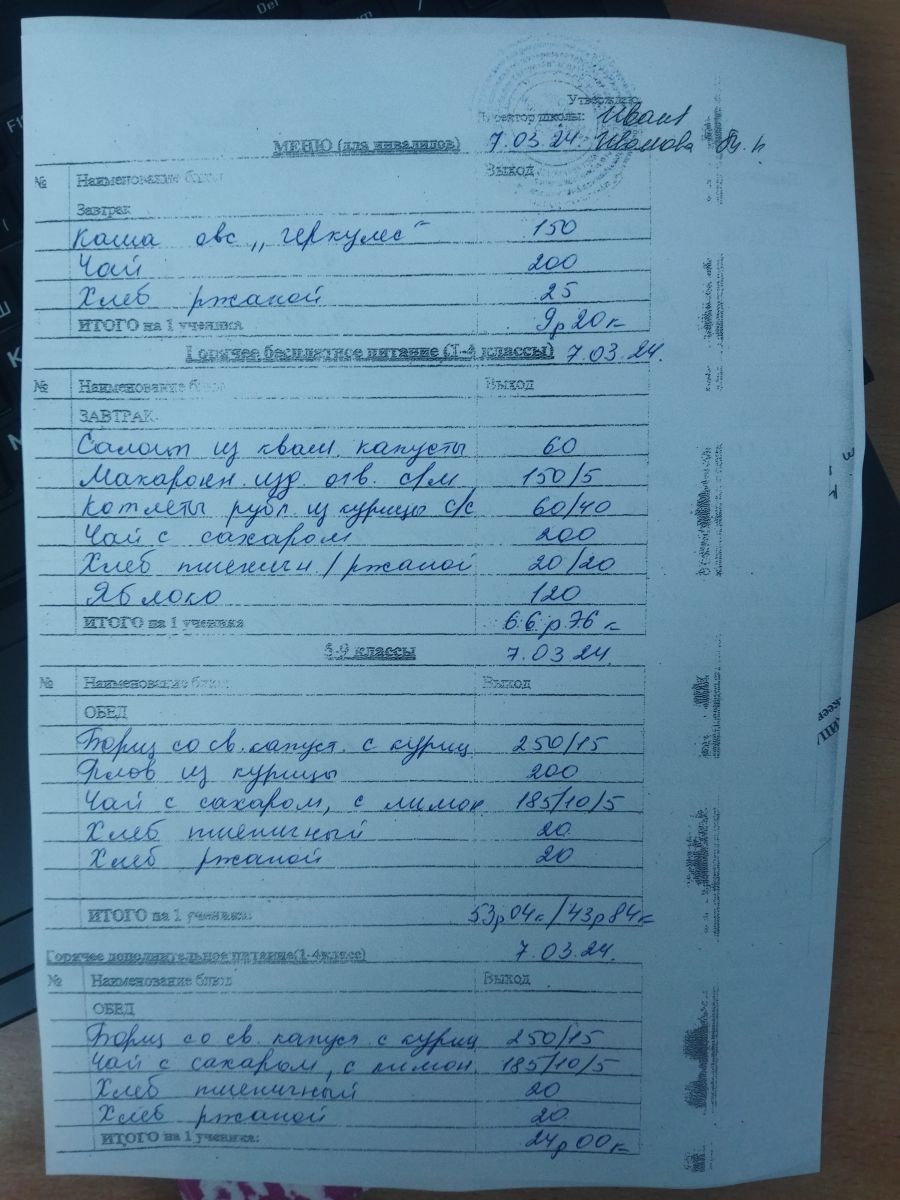 Утверждаю
Директор школы: Иван
МЕНЮ (для инвалидов) 7.03.24. Иванова
№ Наименование блюд Выход
Завтрак
Каша овс „Геркулес“ 150
Чай 200
Хлеб ржаной 25
ИТОГО на 1 ученика 9р20к
Горячее бесплатное питание (1-4 классы) 7.03.24.
№ Наименование блюд Выход
ЗАВТРАК
Салат из кваш. капусты 60
Макарон. изд. отв. с/м 150/5
Котлеты рубл. из курицы с/с 60/40
Чай с сахаром 200
Хлеб пшеничн/ржаной 20/20
Яблоко 120
ИТОГО на 1 ученика 66р76к
5-9 классы 7.03.24.
№ Наименование блюд Выход
ОБЕД
Борщ со св. капуст. с куриц. 250/15
Плов из курицы 200
Чай с сахаром, с лимон 185/10/5
Хлеб пшеничный 20
Хлеб ржаной 20
ИТОГО на 1 ученика: 53р04к/43р84к
Горячее дополнительное питание(1-4класс) 7.03.24.
№ Наименование блюд Выход
ОБЕД
Борщ со св. капуст. с куриц 250/15
Чай с сахаром, с лимон. 185/10/5
Хлеб пшеничный 20
Хлеб ржаной 20
ИТОГО на 1 ученика: 24р00к